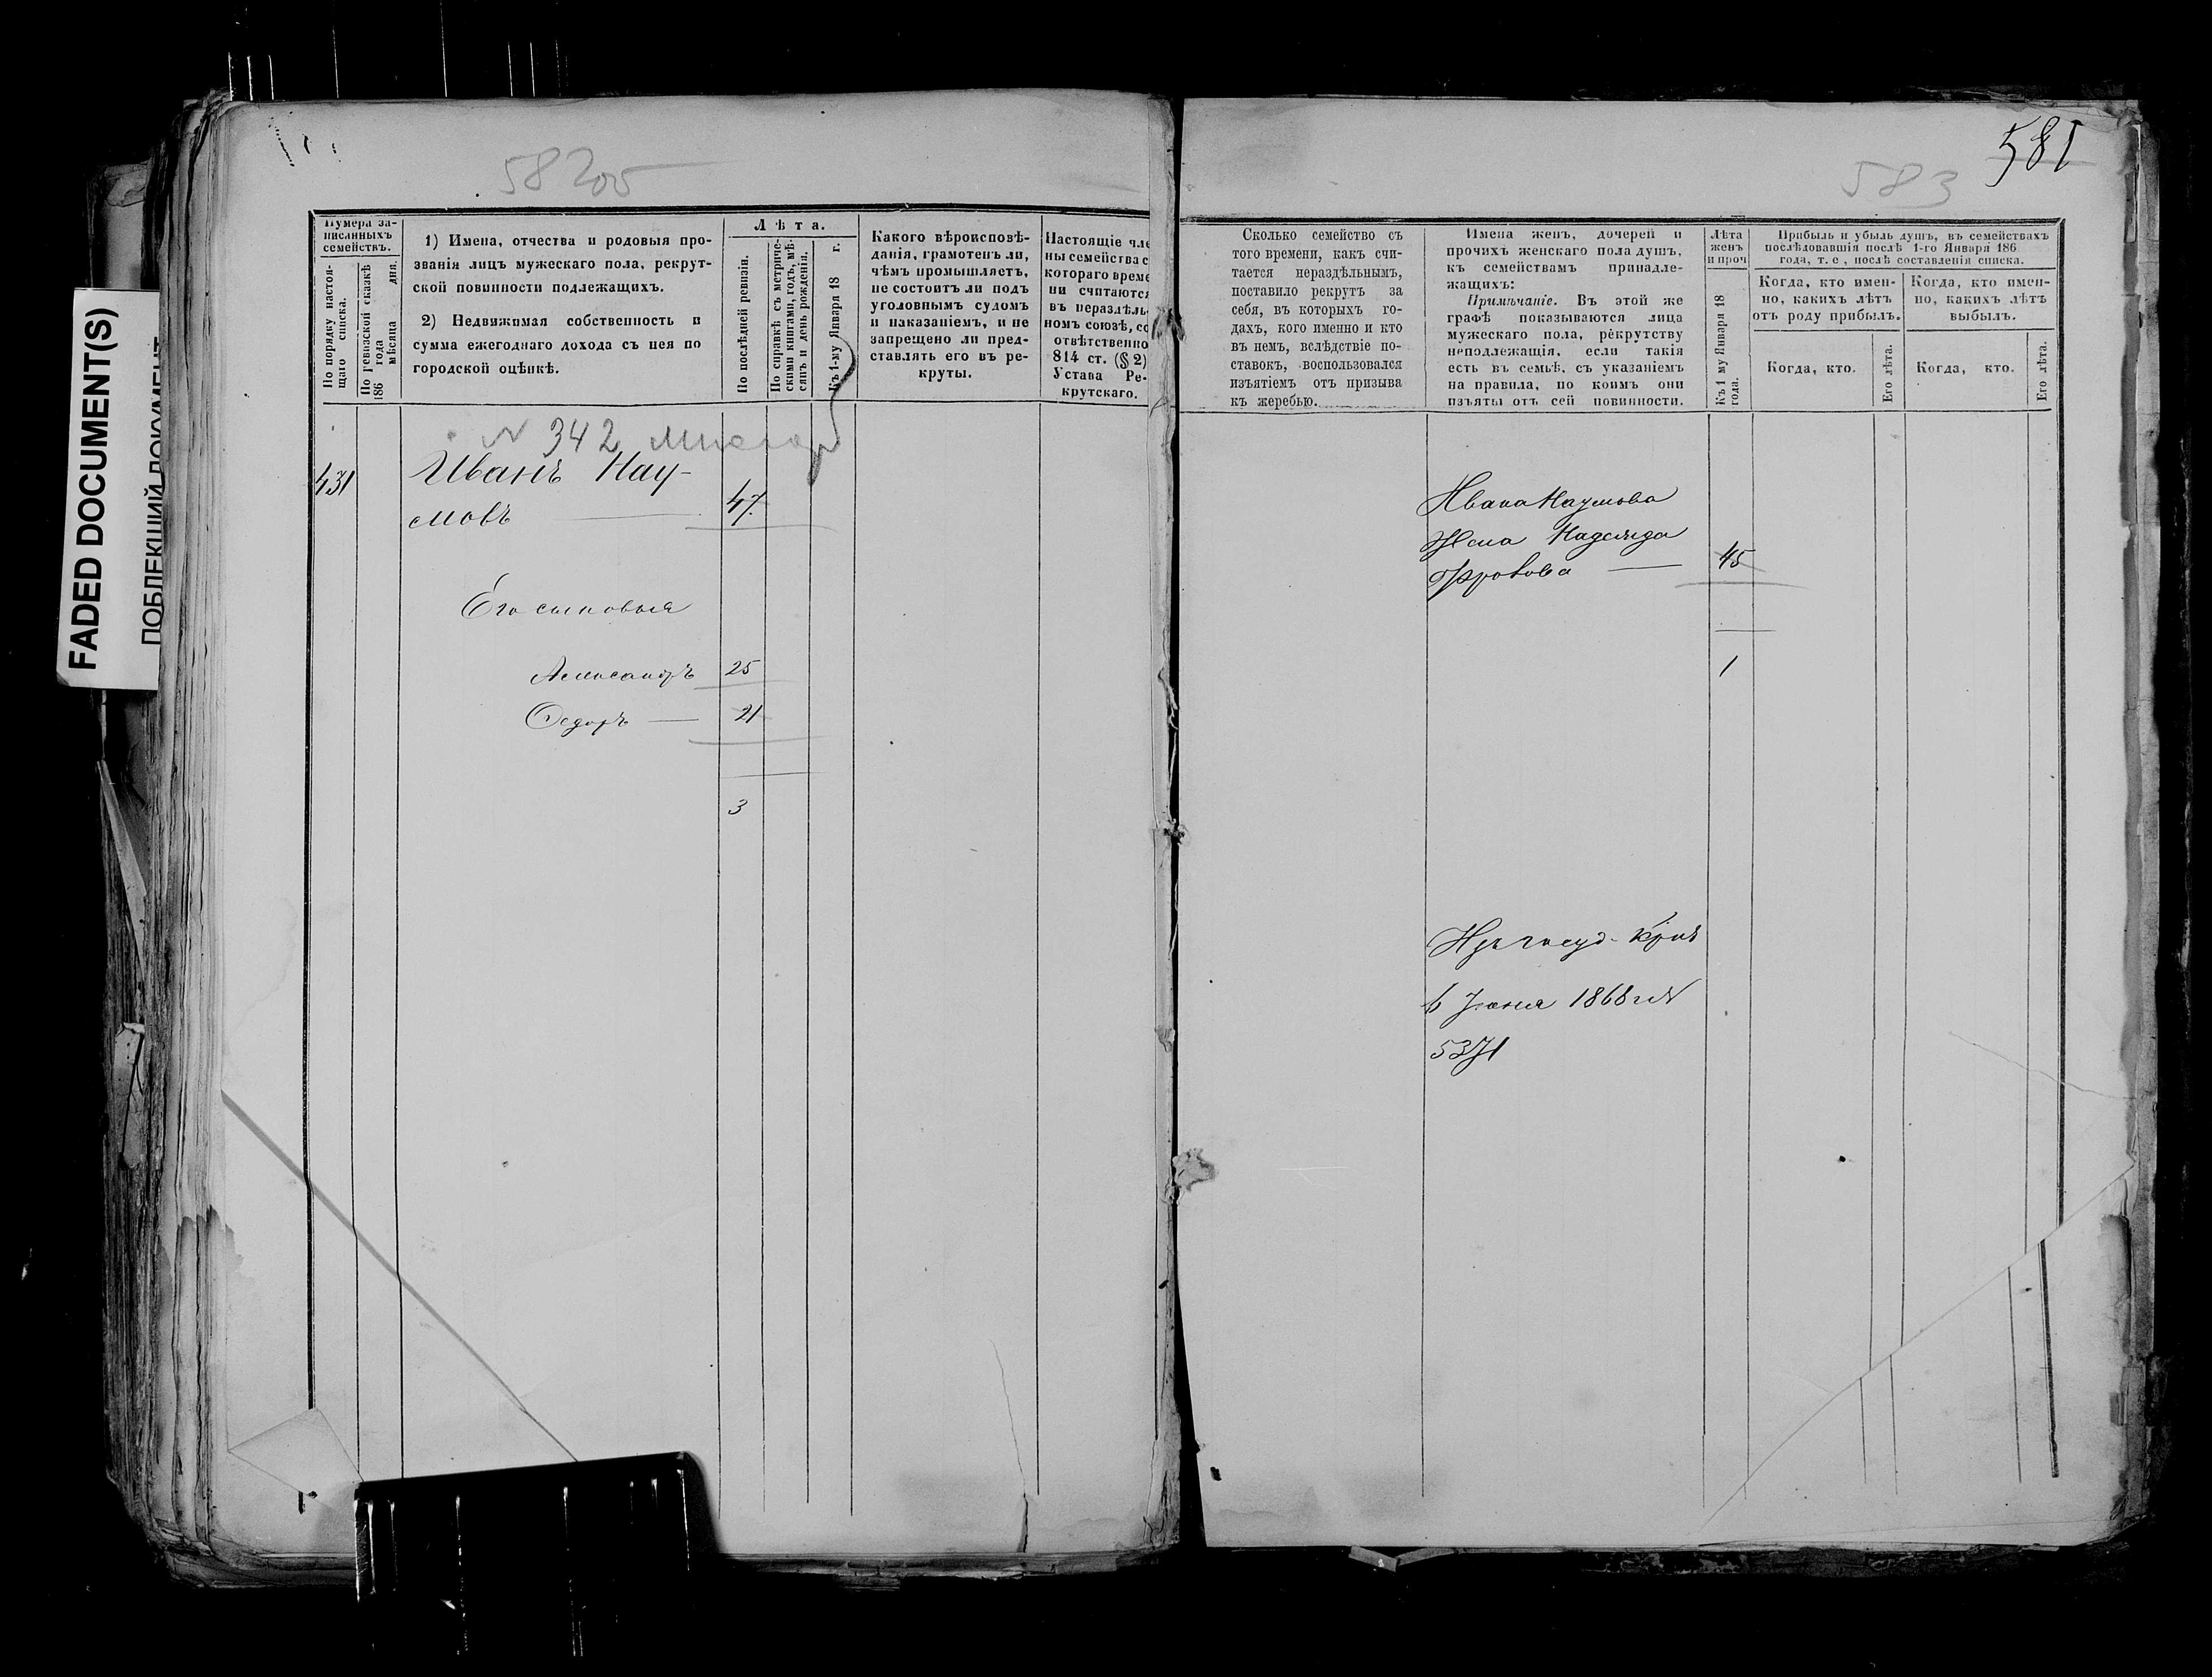 FADED DOCUMENT(S)
ПОБЛЕКШИЙ ДОКУМЕНТ
581
583
Нумера за-
писанныхъ
семействъ.
По порядку настоя-
щаго списка.
По ревизской сказкѣ
186 года
мѣсяца дня.
1) Имена, отчества и родовыя про-
званія лицъ мужескаго пола, рекрут-
ской повинности подлежащихъ.
2) Недвижимая собственность и
сумма ежегоднаго дохода съ нея по
городской оцѣнкѣ.
Лѣта.
По послѣдней ревизіи.
По справкѣ съ метриче-
скими книгами, годъ, мѣ-
сяцъ и день рожденія.
Къ 1-му Января 18 г.
Какого вѣроисповѣ-
данія, грамотенъ ли,
чѣмъ промышляетъ,
не состоитъ ли подъ
уголовнымъ судомъ
и наказаніемъ, и не
запрещено ли пред-
ставлять его въ ре-
круты.
Настоящіе чле
ны семейства с
котораго време
ни считаются
въ нераздѣль-
номъ союзѣ, со
отвѣтственно
814 ст. (§ 2)
Устава Ре-
крутскаго.
Сколько семейство съ
того времени, какъ счи-
тается нераздѣльнымъ,
поставило рекрутъ за
себя, въ которыхъ го-
дахъ, кого именно и кто
въ немъ, вслѣдствіе по-
ставокъ, воспользовался
изъятіемъ отъ призыва
къ жеребью.
Имена женъ, дочерей и
прочихъ женскаго пола душъ,
къ семействамъ принадле-
жащихъ:
Примѣчаніе. Въ этой же
графѣ показываются лица
мужескаго пола, рекрутству
неподлежащія, если такія
есть въ семьѣ, съ указаніемъ
на правила, по коимъ они
изъяты отъ сей повинности.
Лѣта
женъ
и проч
Къ 1 му Января 18
года.
Прибыль и убыль душъ, въ семействахъ
послѣдовавшія послѣ 1-го Января 186
года, т. е., послѣ составленія списка.
Когда, кто имен-
но, какихъ лѣтъ
отъ роду прибылъ.
Когда, кто имен-
но, какихъ лѣтъ
выбылъ.
Когда, кто.
Его лѣта.
Когда, кто.
Его лѣта.
N 342
431
Иванъ Нау-
мовъ 47
Его сыновья
Александръ 25
Ѳедоръ 21
3
Ивана Наумова
Жена Надежда
Фролова 45
1
Изъ госуд. Крит
6 Іюня 1868 г. N
5371